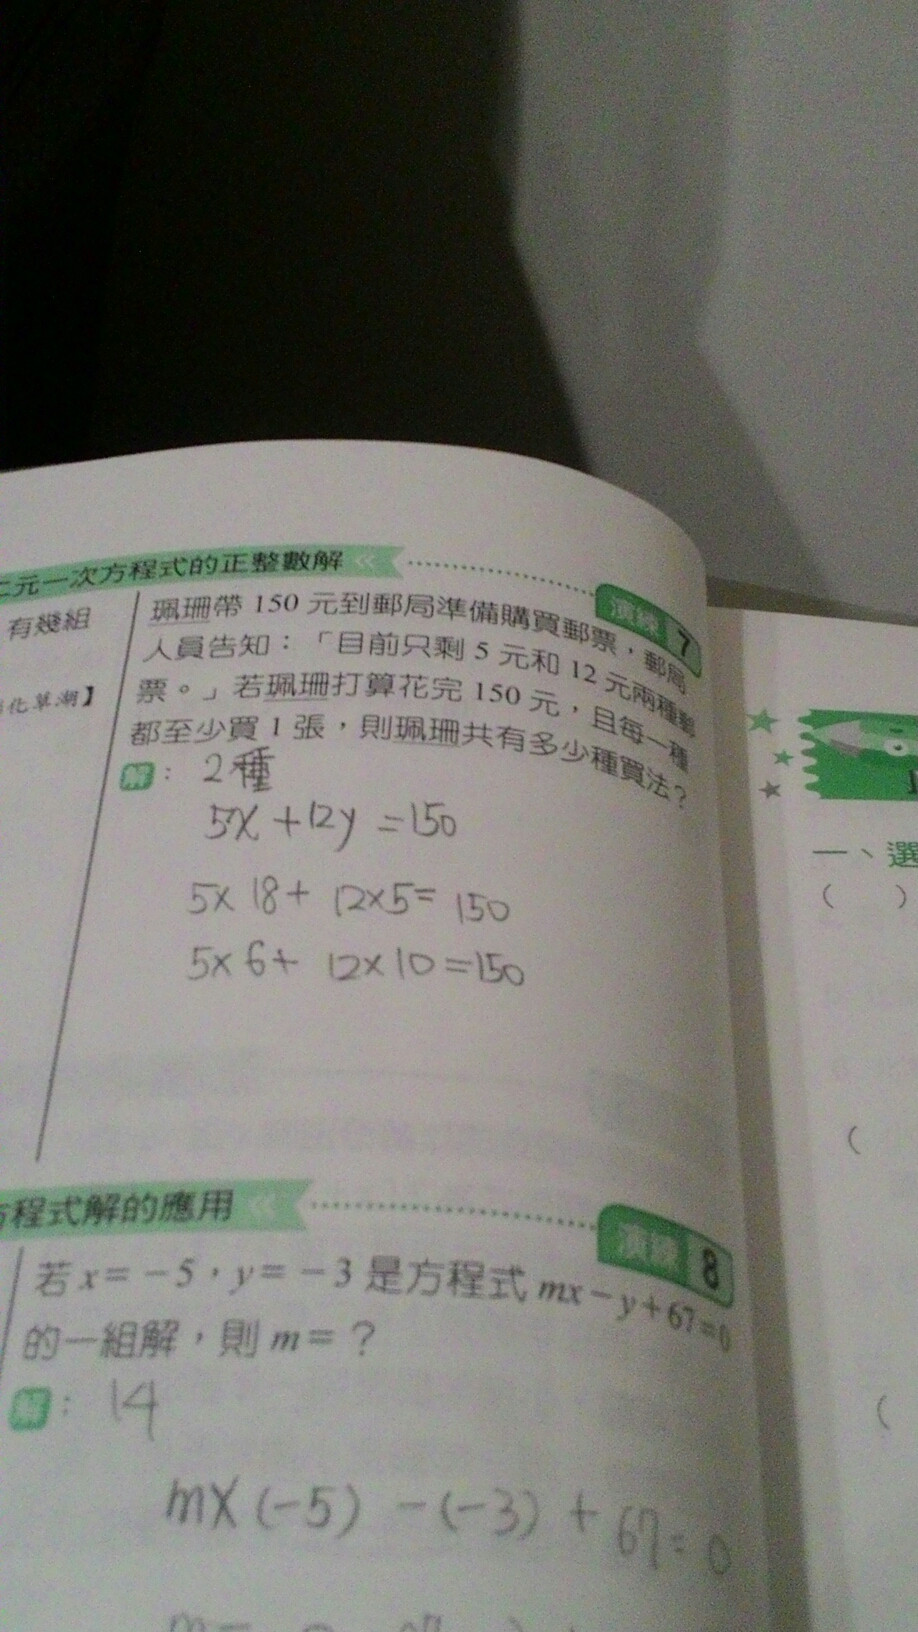 二元一次方程式的正整數解
演練 7
有幾組
化草湖】
珮珊帶 150 元到郵局準備購買郵票，郵局
人員告知：「目前只剩 5 元和 12 元兩種郵
票。」若珮珊打算花完 150 元，且每一種
都至少買 1 張，則珮珊共有多少種買法？
解：2種
5x+12y=150
5×18+12×5=150
5×6+12×10=150
方程式解的應用
演練 8
若 x=-5，y=-3 是方程式 mx-y+67=0
的一組解，則 m=？
解：14
m×(-5)-(-3)+67=0
m=
一、選
( )
(
(